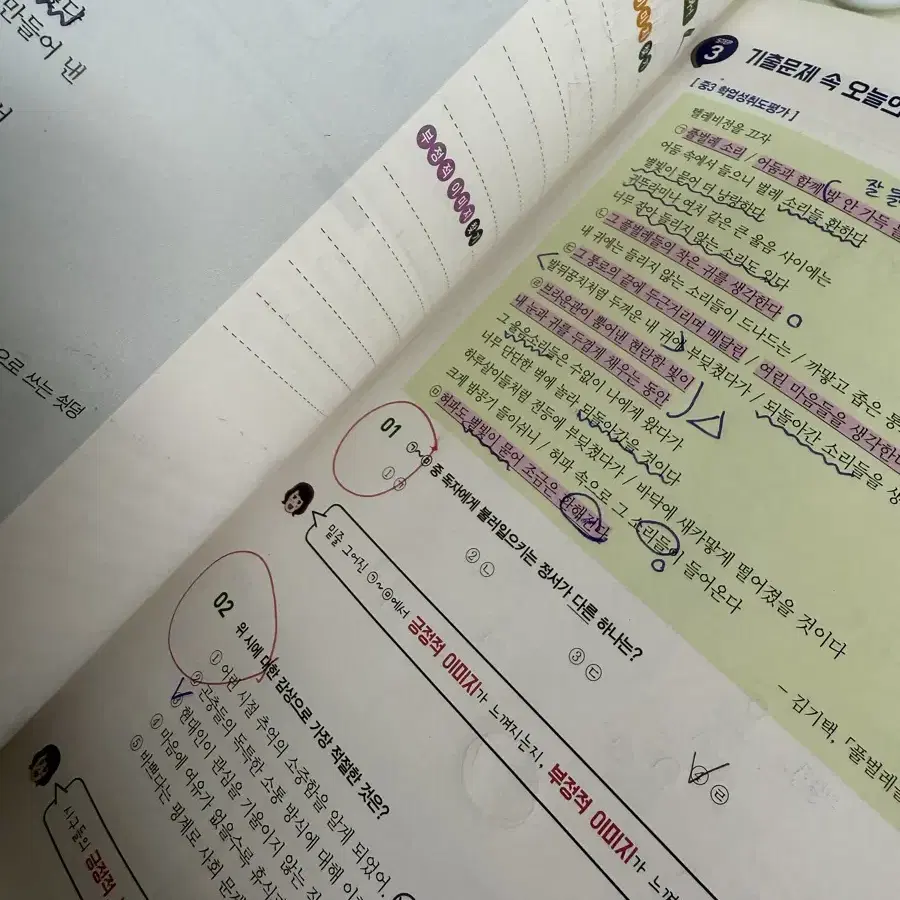 만들어 낸
으로 쓰는 쉿덤
부정적 이미지 찾기
STEP 3 기출문제 속 오늘의
[ 중3 학업성취도평가 ]
텔레비전을 끄자
㉠ 풀벌레 소리 / 어둠과 함께 방 안 가득 들
어둠 속에서 들으니 벌레 소리들 환하다
별빛이 묻어 더 낭랑하다
귀뚜라미나 여치 같은 큰 울음 사이에는
너무 작아 들리지 않는 소리도 있다
㉡ 그 풀벌레들의 작은 귀를 생각한다
내 귀에는 들리지 않는 소리들이 드나드는 / 까맣고 좁은 통
㉢ 그 통로의 끝에 두근거리며 매달린 / 여린 마음들을 생각한다
발뒤꿈치처럼 두꺼운 내 귀에 부딪쳤다가 / 되돌아간 소리들을 생
㉣ 브라운관이 뿜어낸 현란한 빛이
내 눈과 귀를 두껍게 채우는 동안
그 울음소리들은 수없이 나에게 왔다가
너무 단단한 벽에 놀라 되돌아갔을 것이다
하루살이들처럼 전등에 부딪쳤다가 / 바닥에 새카맣게 떨어졌을 것이다
크게 밤공기 들이쉬니 / 허파 속으로 그 소리들이 들어온다
㉤ 허파도 별빛이 묻어 조금은 환해진다
- 김기택, 「풀벌레
잘 들
01 ㉠~㉤ 중 독자에게 불러일으키는 정서가 다른 하나는?
① ㉠ ② ㉡ ③ ㉢ ④ ㉣
밑줄 그어진 ㉠~㉤에서 긍정적 이미지가 느껴지는지, 부정적 이미지가 느껴
02 위 시에 대한 감상으로 가장 적절한 것은?
① 어린 시절 추억의 소중함을 알게 되었어.
② 곤충들의 독특한 소통 방식에 대해
③ 현대인이 관심을 기울이지 않는
④ 마음에 여유가 없을수록 휴식
⑤ 바쁘다는 핑계로 사회 문
시구들의 긍정적